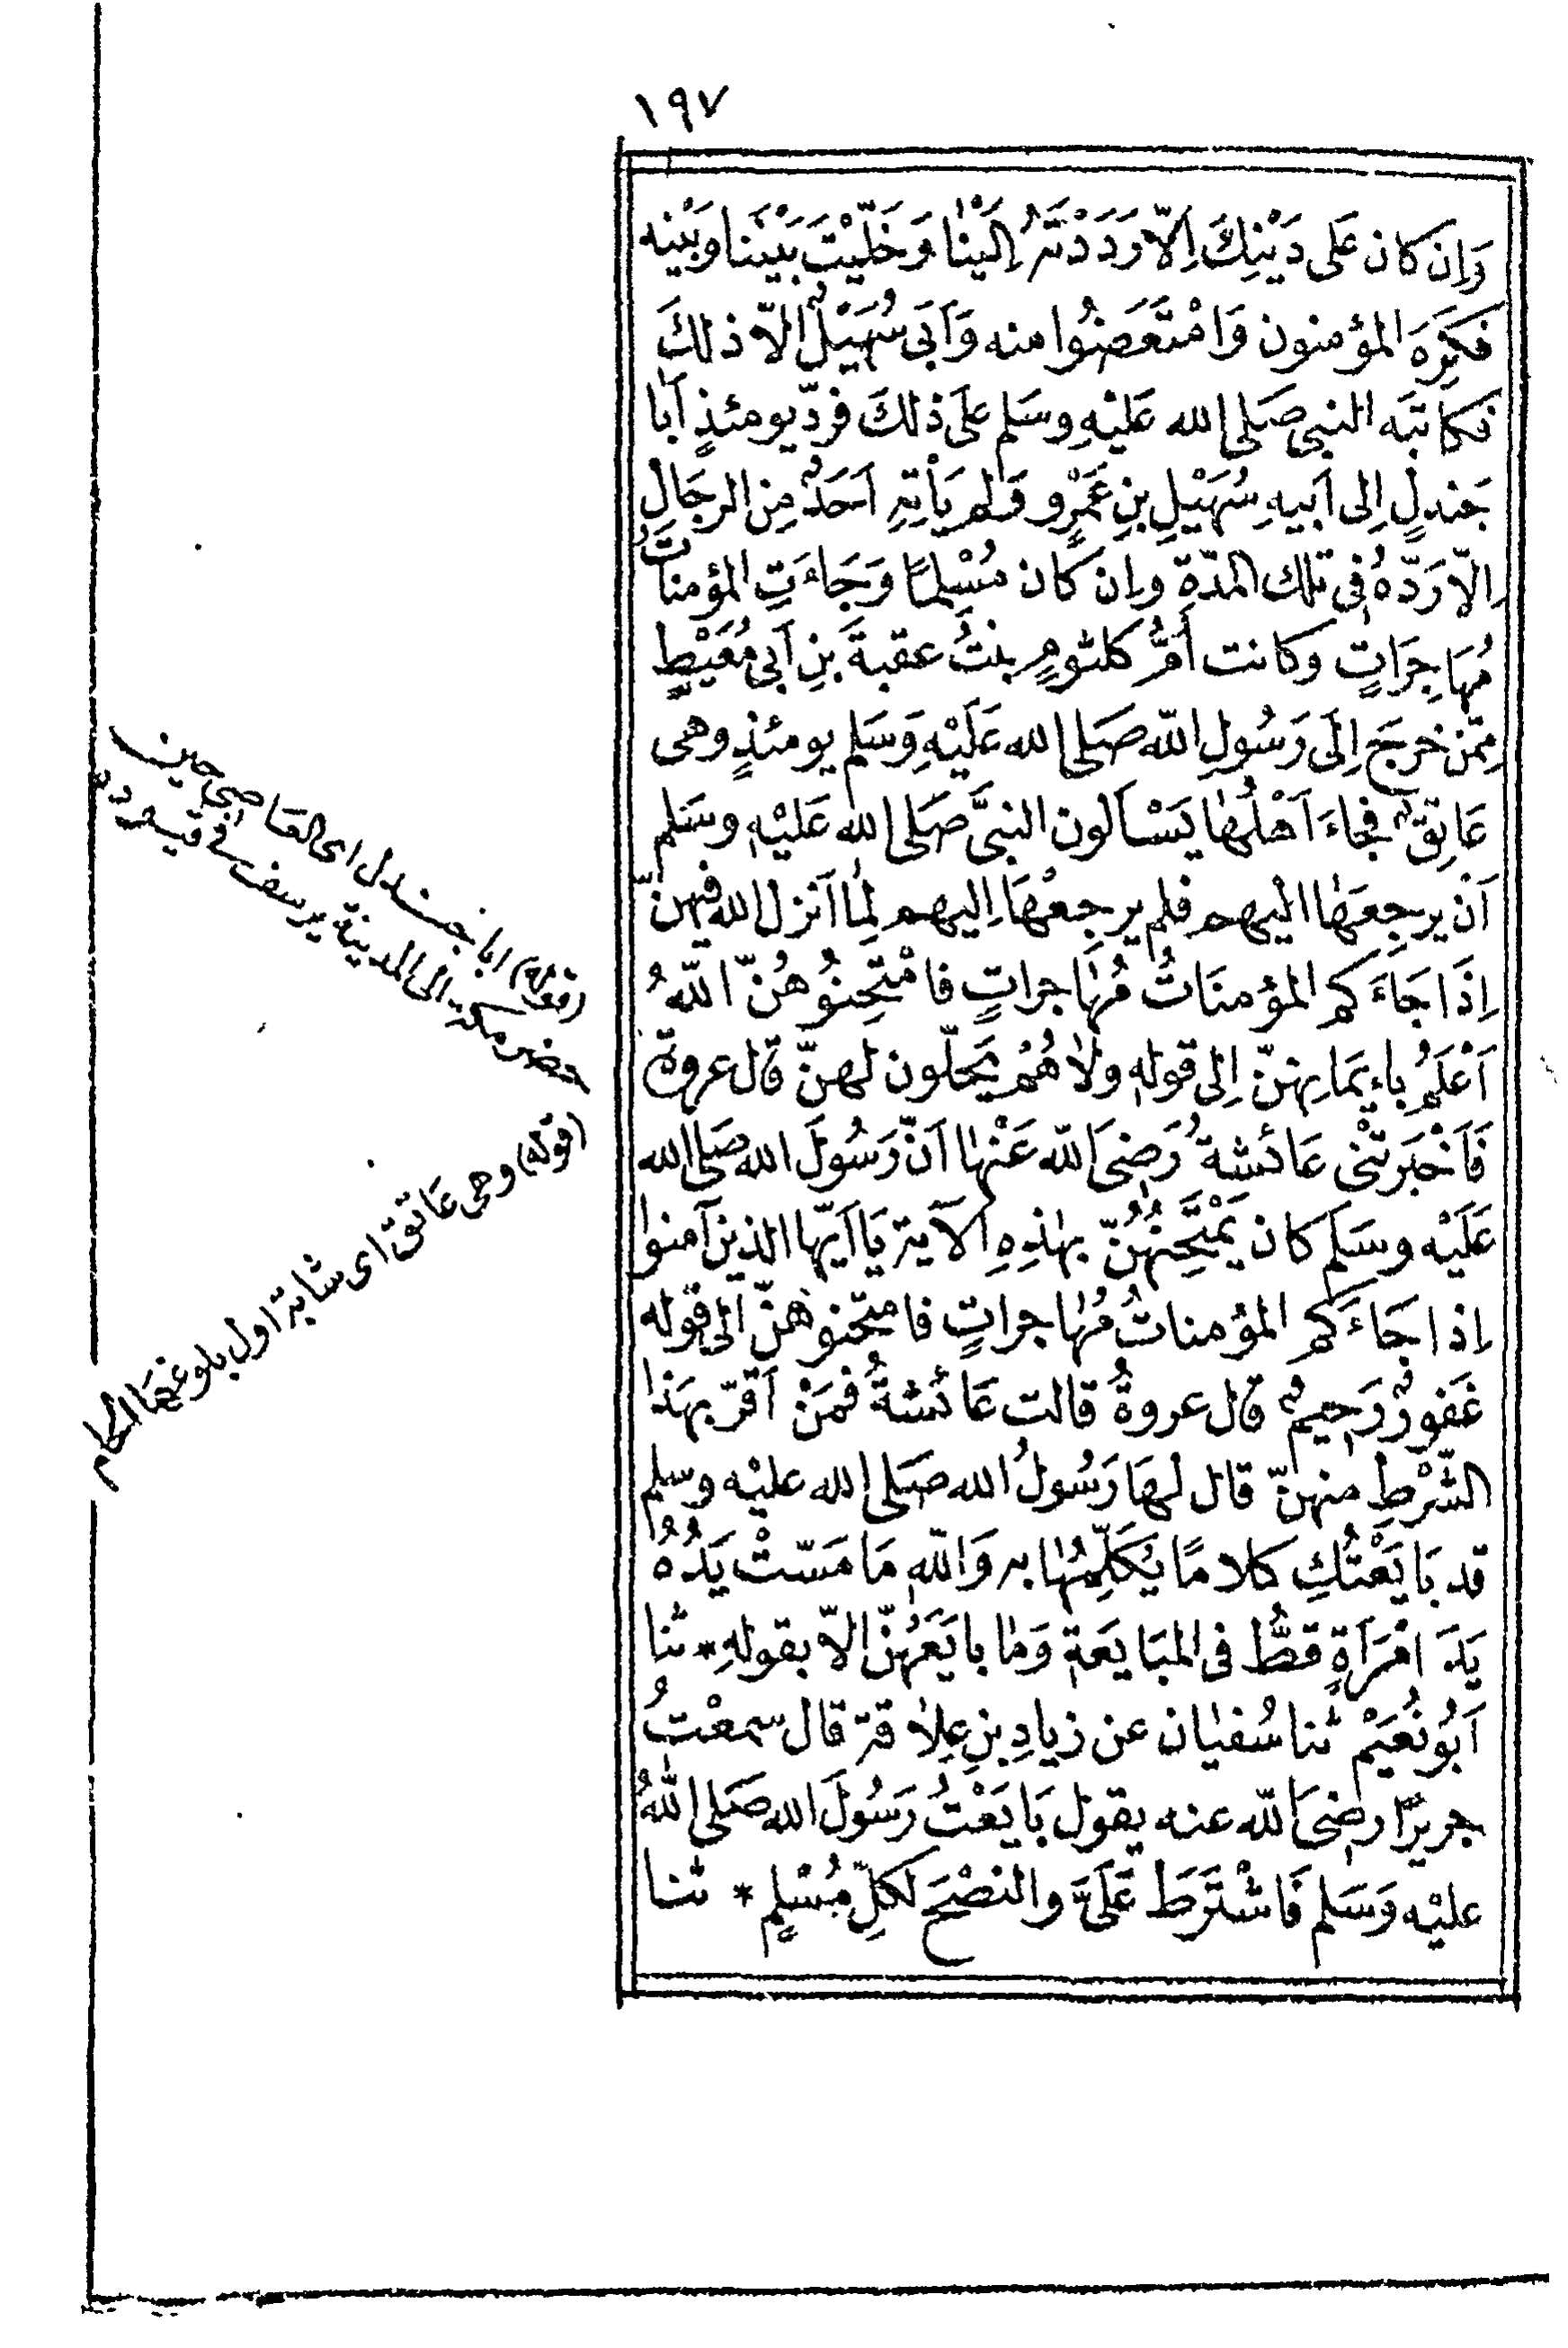 ١٩٧
وَاِن كان عَلى دَيْنِكَ اِلّا رَدَدْتَهُ اِلَيْنٰا وَخَلَّيْتَ بَيْنَنَا وَبَيْنِه
فَكَرِهَ المؤمنون وَامْتَعَضُوا منه وَاَبَى سُهَيْلٌ الّا ذلكَ
فكاتبَه النبى صَلى الله عَليْهِ وسَلم علَى ذلكَ فردّ يومئذٍ اَبا
جَندلٍ اِلى اَبيهِ سُهَيْلِ بنِ عَمْرٍو وَلم يَأْتِهِ اَحَدٌ مِن الرجَالِ
اِلّا رَدّهُ فِى تلك المدّةِ واِن كان مُسْلِمًا وَجَاءَتِ المؤمناتُ
مُهَاجِرَاتٍ وكانت اُمُّ كلثومٍ بنتُ عقبةَ بنِ اَبى مُعَيْطٍ
مِمّن خرجَ اِلَى رَسُولِ اللّه صَلى الله عَلَيْهِ وَسَلم يومئذٍ وهى
عَاتِقٌ فجاءَ اَهْلُهٰا يَسْاَلون النبىَّ صَلى الله عَليْهِ وسَلم
اَنْ يرجِعَهٰا اليهم فلم يرجِعْهَا اِليهم لِمٰا اَنزل الله فيهنّ
اِذَا جَاءَكم المؤمنَاتُ مُهٰاجراتٍ فامْتَحِنوُهُنّ اللّهُ
اَعْلَمُ باءِيمَانِهنّ اِلى قوله ولاٰهُمْ يَحِلّون لهنّ قال عروة
فَاَخْبَرتْنى عَائشةُ رَضىَ اللّه عَنْهٰا اَنّ رَسُولَ الله صَلى الله
عَلَيْه وسَلَم كان يَمْتَحِنُهُنّ بهٰذِهِ الآية يَا اَيّها الذين آمنوا
اِذا جَاءَكم المؤمناتُ مُهٰاجراتٍ فامتحنوهنّ الى قوله
غَفورٌ رَحيمٌ قال عروةُ قالت عَائشةُ فمَنْ اَقرّ بهَذا
الشّرْطِ منهنّ قال لهَا رَسُولُ الله صَلى الله عليْه وسلم
قد بَايَعْتُكِ كلامًا يُكَلّمُهٰا به وَاللّهِ مَا مَسّتْ يَدُهُ
يَدَ امْرَاَةٍ قطُّ فى المبَايَعَةِ وَمٰا بايَعَهُنّ الّا بقولهِ * ثنا
اَبُو نُعَيْم ثنا سُفيٰان عن زيادِ بنِ عِلاٰقة قال سمعْتُ
جريرًا رضىَ اللّه عنه يقول بَايَعْتُ رَسُولَ الله صَلى اللّٰهُ
عليْه وَسَلم فَاشْتَرَطَ عَلَىَّ والنصْحَ لكلّ مُسْلمٍ * ثنا
(قوله) اباجندل اى العاصى حين
حضر مكة الى المدينة يرسف فى قيوده
(قوله) وهى عَاتق اى شابة اول بلوغهَا الحلم